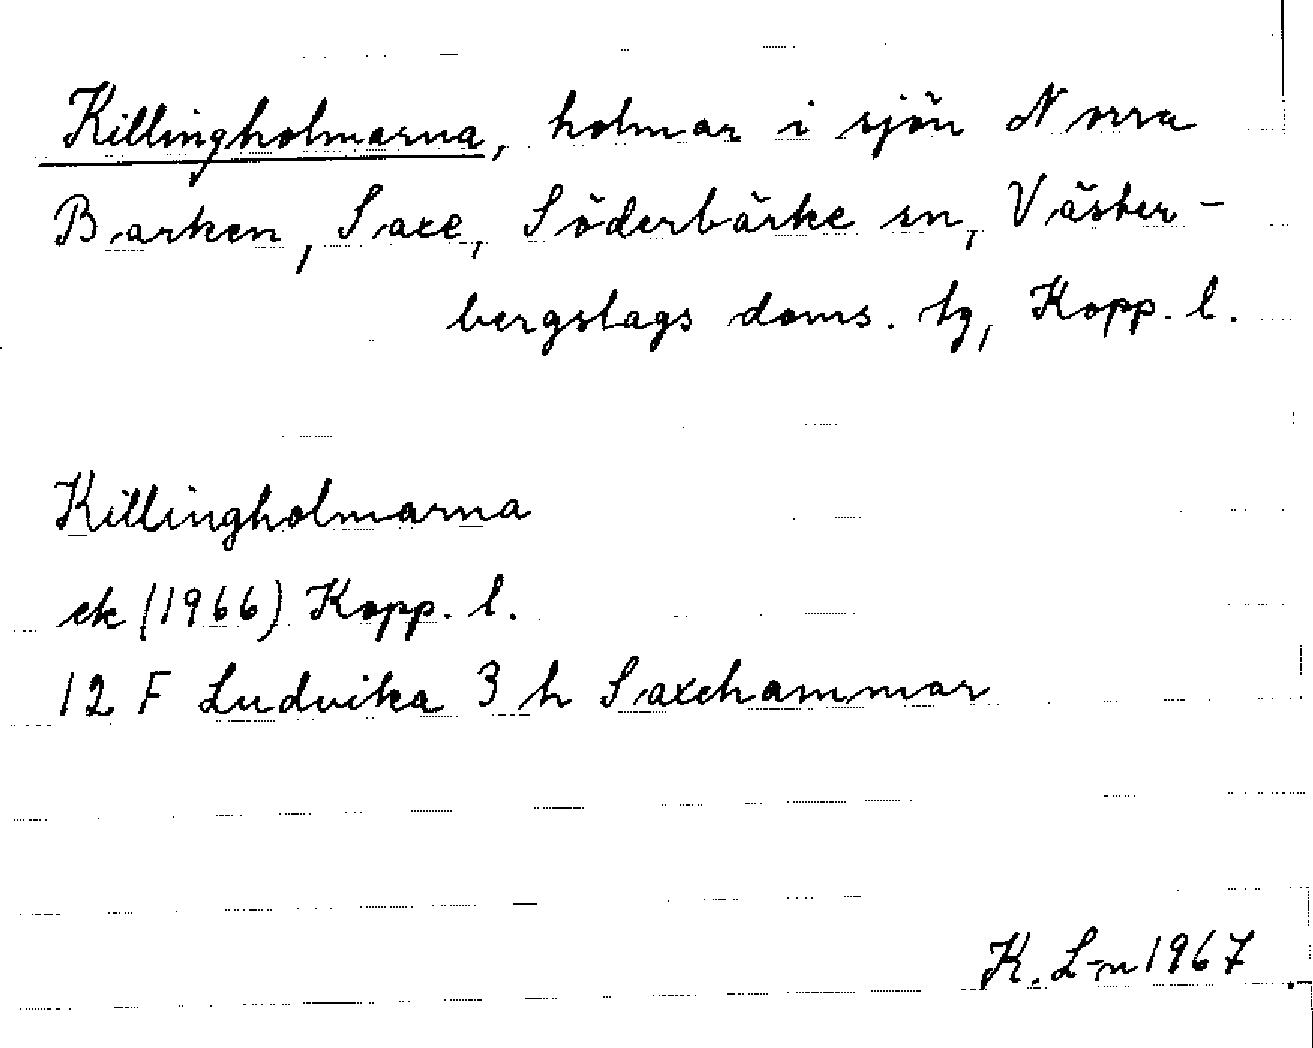 Killingholmarna, holmar i sjön Norra
Barken, Saxe, Söderbärke sn, Väster-
bergslags doms. tg, Kopp. l.
Killingholmarna
ek (1966) Kopp. l.
12 F Ludvika 3 h Saxehammar
K. L-n 1967